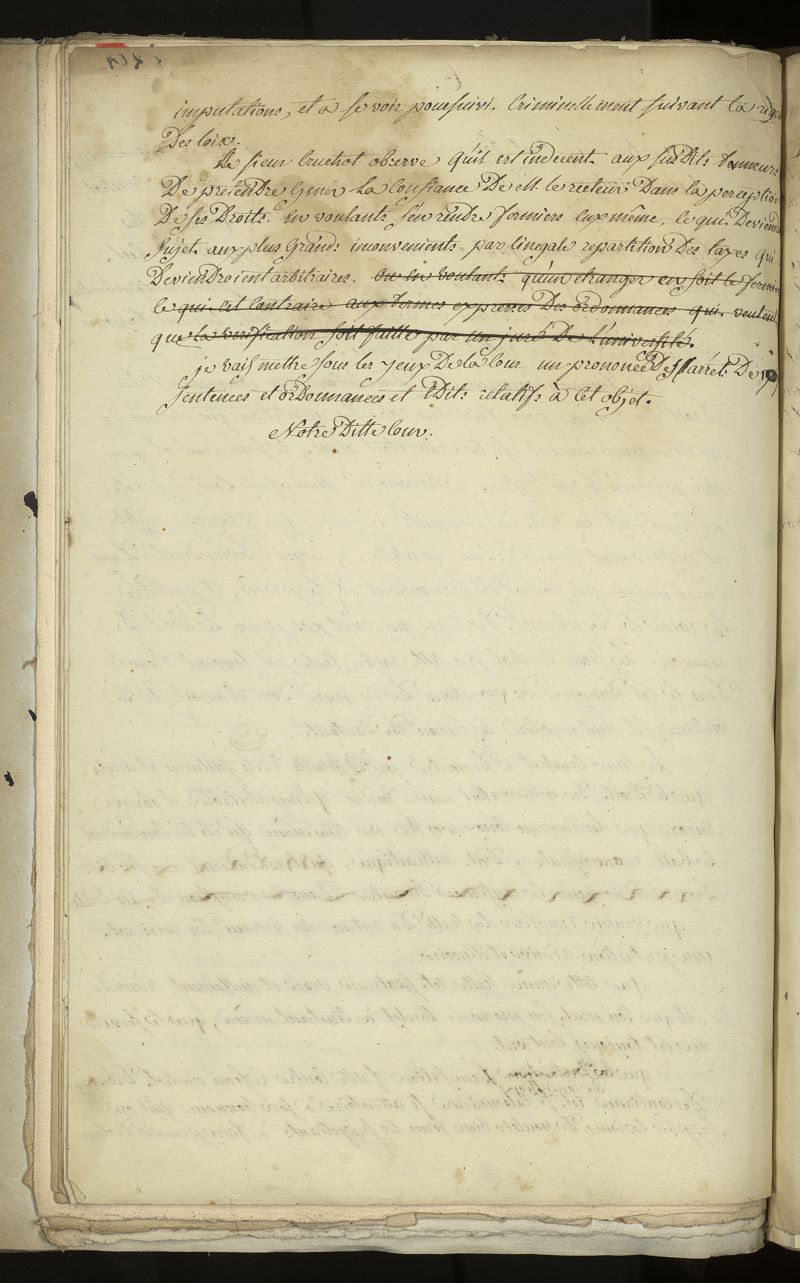 imputations, et a se voir poursuivi. Criminellement suivant la
Des loix.
Le sieur Cruchot observe qu'il est indecent aux susdits tanneurs
De pretendre gener La Confiance De M. le recteur Dans la perception
De ses Droits. En voulants s'en rendre fermiers eux même, le qui Deviendr
Sujet aux plus Grands inconvenients par linegale repartition Des taxes qui
Deviendroient arbitraires. Ou En voulants qu'un etranger en soit le fermier
le qui est Contraire aux termes expresses Des ordonnances qui veulent
que la verification soit faitte par un juré De L'université.
je vais mettre sous les yeux De la Cour un prononcé Des arrets De
Sentences et ordonnances et Edits relatifs à Cet objet.
Notre Ditte Cour.